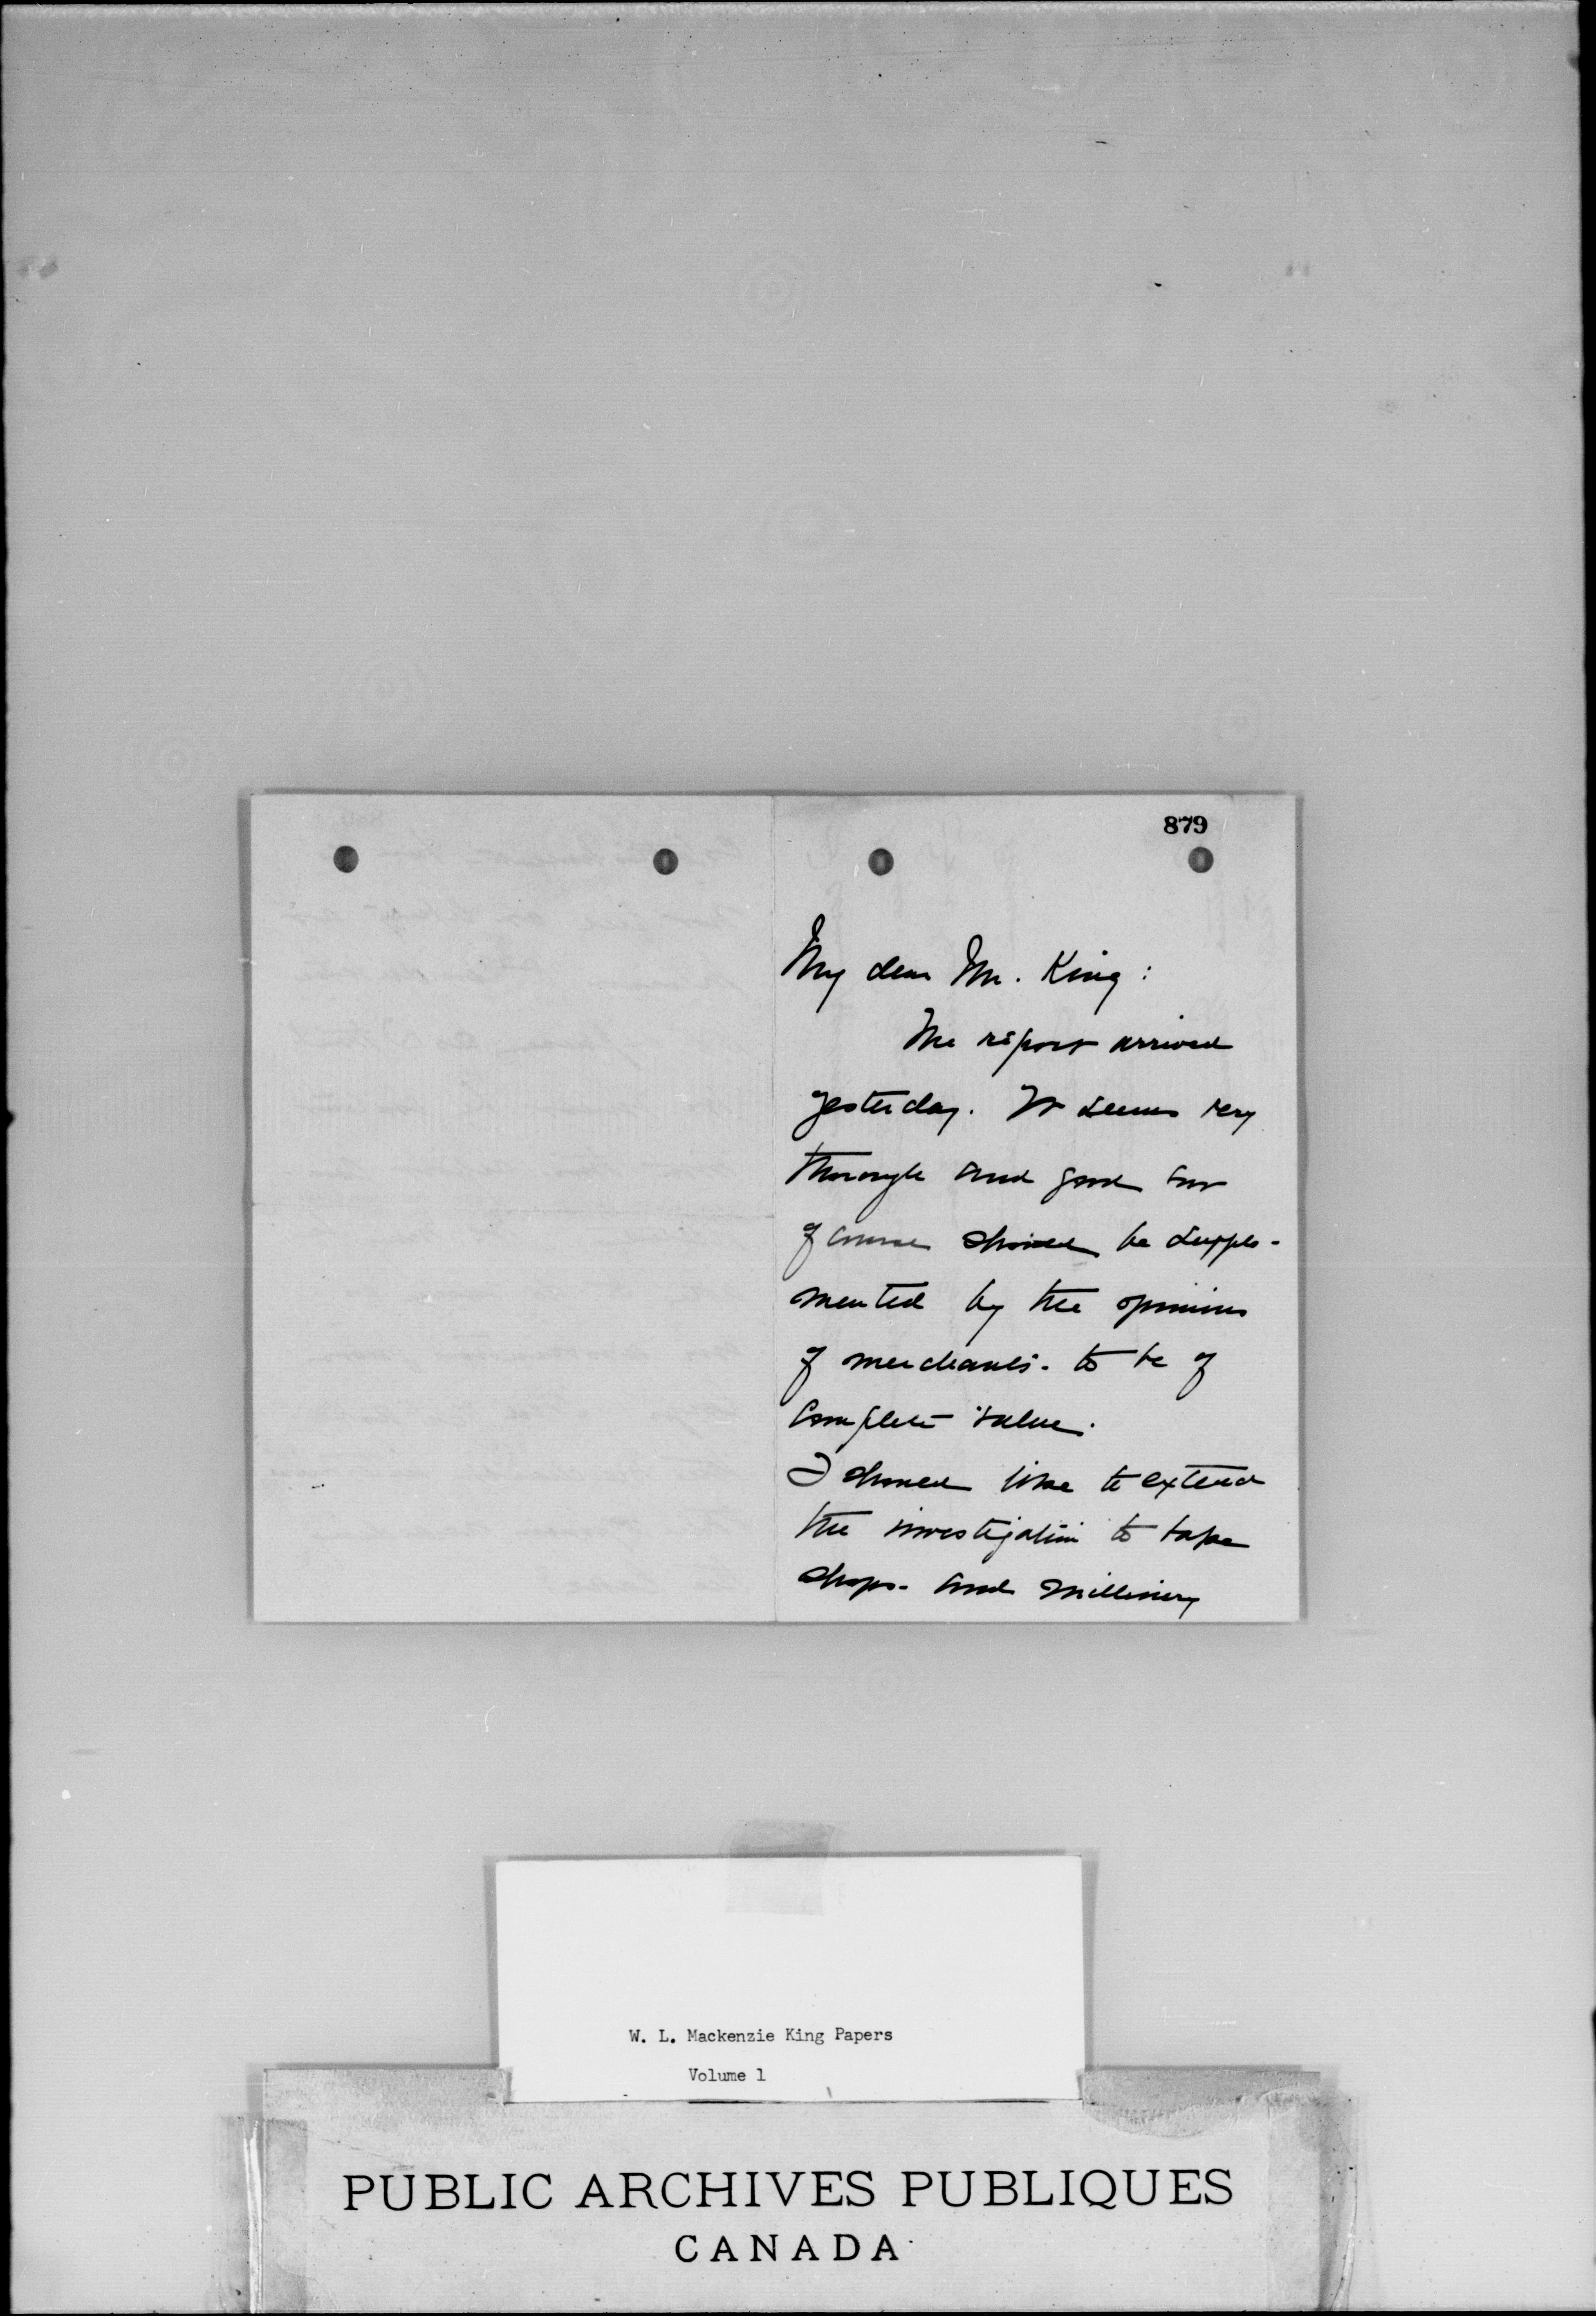 879
My dear Mr. King:
The report arrived
yesterday. It seems very
thorough and good but
of course should be supple-
mented by the opinions
of merchants. to be of
complete value.
I should like to extend
the investigation to
shops. and millinery
W. L. Mackenzie King Papers
Volume 1
PUBLIC ARCHIVES PUBLIQUES
CANADA